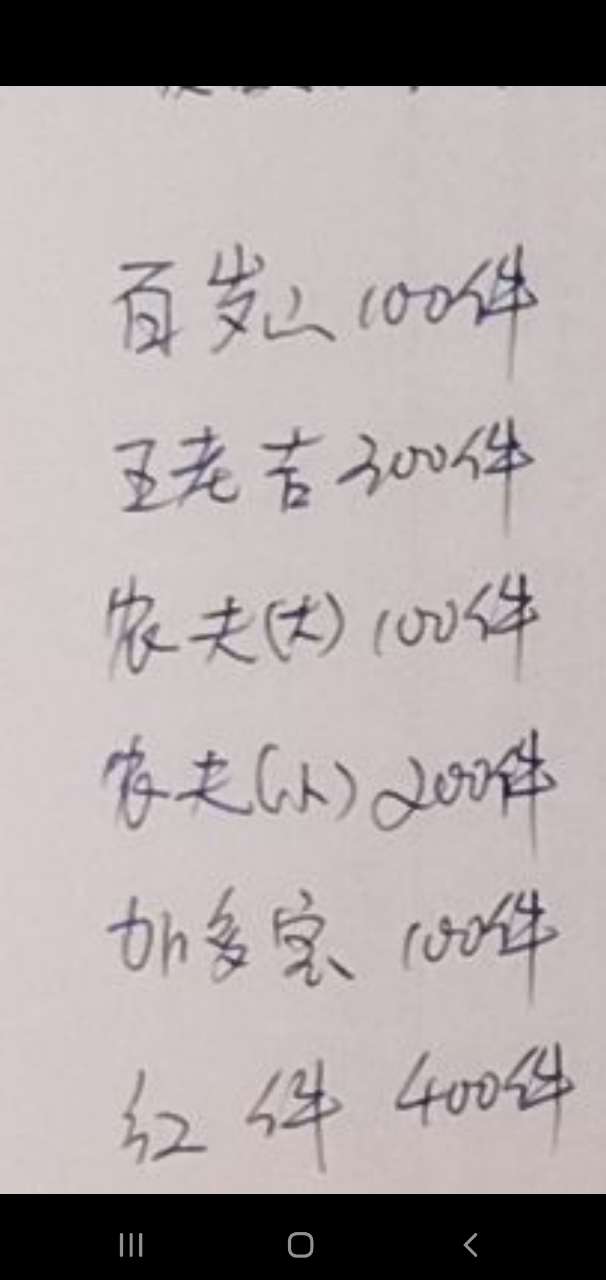 百岁山 100件
王老吉 300件
农夫(大) 100件
农夫(小) 200件
加多宝 100件
红件 400件